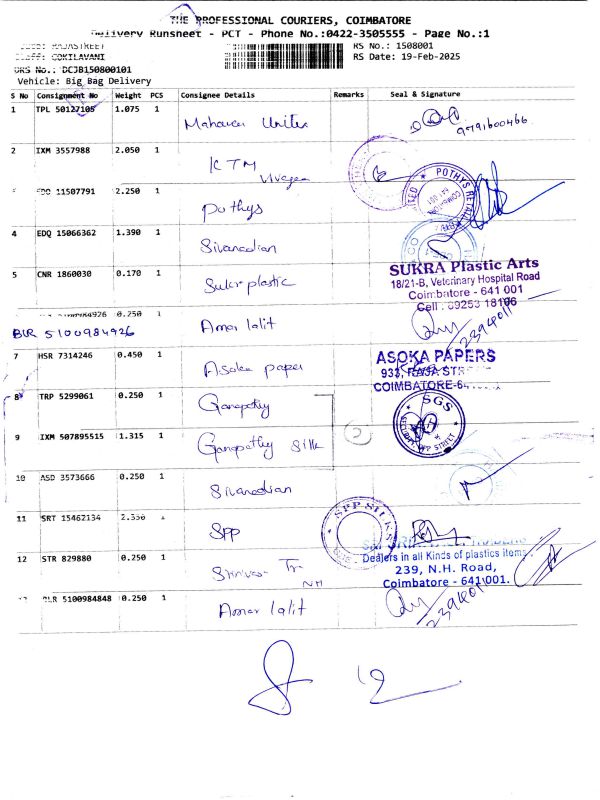 THE PROFESSIONAL COURIERS, COIMBATORE
Delivery Runsheet - PCT - Phone No.:0422-3505555 - Page No.:1
RAJASTREET RS No.: 1508001
GOKILAVANI RS Date: 19-Feb-2025
DRS No.: DCJB150800101
Vehicle: Big Bag Delivery
S No Consignment No Weight PCS Consignee Details Remarks Seal & Signature
1 TPL 50127105 1.075 1 Mahaveer Unitex 9791600466
2 IXM 3557988 2.050 1 KTM
EDQ 11507791 2.250 1 Pothys POTHYS RETAIL
4 EDQ 15066362 1.390 1 Sivanadian
5 CNR 1860030 0.170 1 Suker plastic
SUKRA Plastic Arts
18/21-B, Veterinary Hospital Road
Coimbatore - 641 001
Cell : 09253 18106
0.250 1 Amar lalit
BLR 5100984926
7 HSR 7314246 0.450 1 Asoka paper
ASOKA PAPERS
COIMBATORE
8 TRP 5299061 0.250 1 Ganapathy
SGS
9 IXM 507895515 1.315 1 Ganapathy Silk 2
10 ASD 3573666 0.250 1 Sivanadian
11 SRT 15462134 1 SPP
SPP SILKS
12 STR 829880 0.250 1 NH
Dealers in all Kinds of plastics items
239, N.H. Road,
Coimbatore - 641 001.
BLR 5100984848 0.250 1 Amar lalit